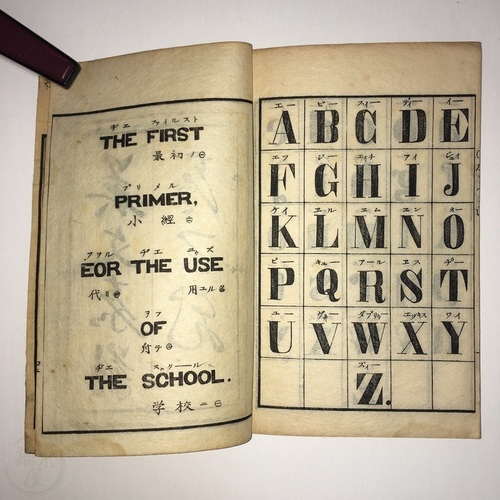 ヂエ フイルスト
THE FIRST
最初ノ㊀
プリメル
PRIMER,
小經
フヲル ヂエ ユッズ
EOR THE USE
代リ 用ユル
ヲフ
OF
舟テ
ヂエ スクリール
THE SCHOOL.
学校 ニ
エー ビー スィー ディー イー
A B C D E
エフ ジー エイチ アイ ジェイ
F G H I J
ケイ エル エム エン オー
K L M N O
ピー キュー アール エス
P Q R S T
ユー ダブリュ エッキス ワイ
U V W X Y
Z.